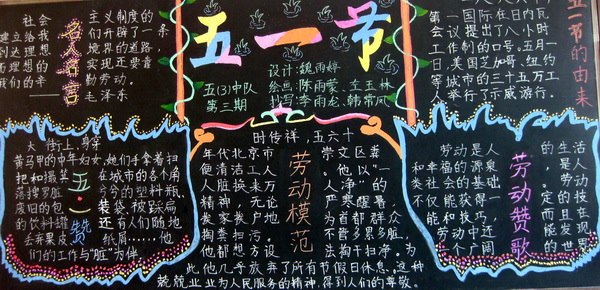 社会 主义制度的
建立给我 们开辟了一条
到达理想 境界的道路,
而理想的 实现还要靠
我们的辛 勤劳动。
——毛泽东
名人名言
五一节
五(3)中队
第三期
设计:魏雨婷
绘画:陈雨蒙、左玉林
抄写:李雨龙、韩常凤
第一国际在日内瓦
会议提出了八小时
工作制的口号。五月一
日,美国芝加哥、纽约
等城市的三十五万工
人举行了示威游行。
五一节的由来
大街上,身穿
黄马甲的中年妇女,她们手拿着扫
把和撮箕 在城市的各个角
落搜罗脏 兮兮的塑料瓶,
废旧的包 装袋,被踩扁
的饮料罐 还有人们随地
丢弃果皮、 纸屑……,他
们的工作与“脏”为伴
五·一赞
时传祥,五六十
年代北京市 崇文区粪
便清洁工人 。他以“一
人脏换来万 人净”的
精神,无论 严寒酷暑,
挨家挨户地 为首都群众
掏粪扫污。 不管多累多脏,
他都想方设 法掏干扫净。为
此他几乎放弃了所有节假日休息。这种
兢兢业业为人民服务的精神,得到人们的尊敬。
劳动模范
劳动是人 生活
和幸福的源泉 的,
类社会的基础 是劳动
不仅能获得一 人
能和技巧,
劳动中还
一个广阔
劳动赞歌